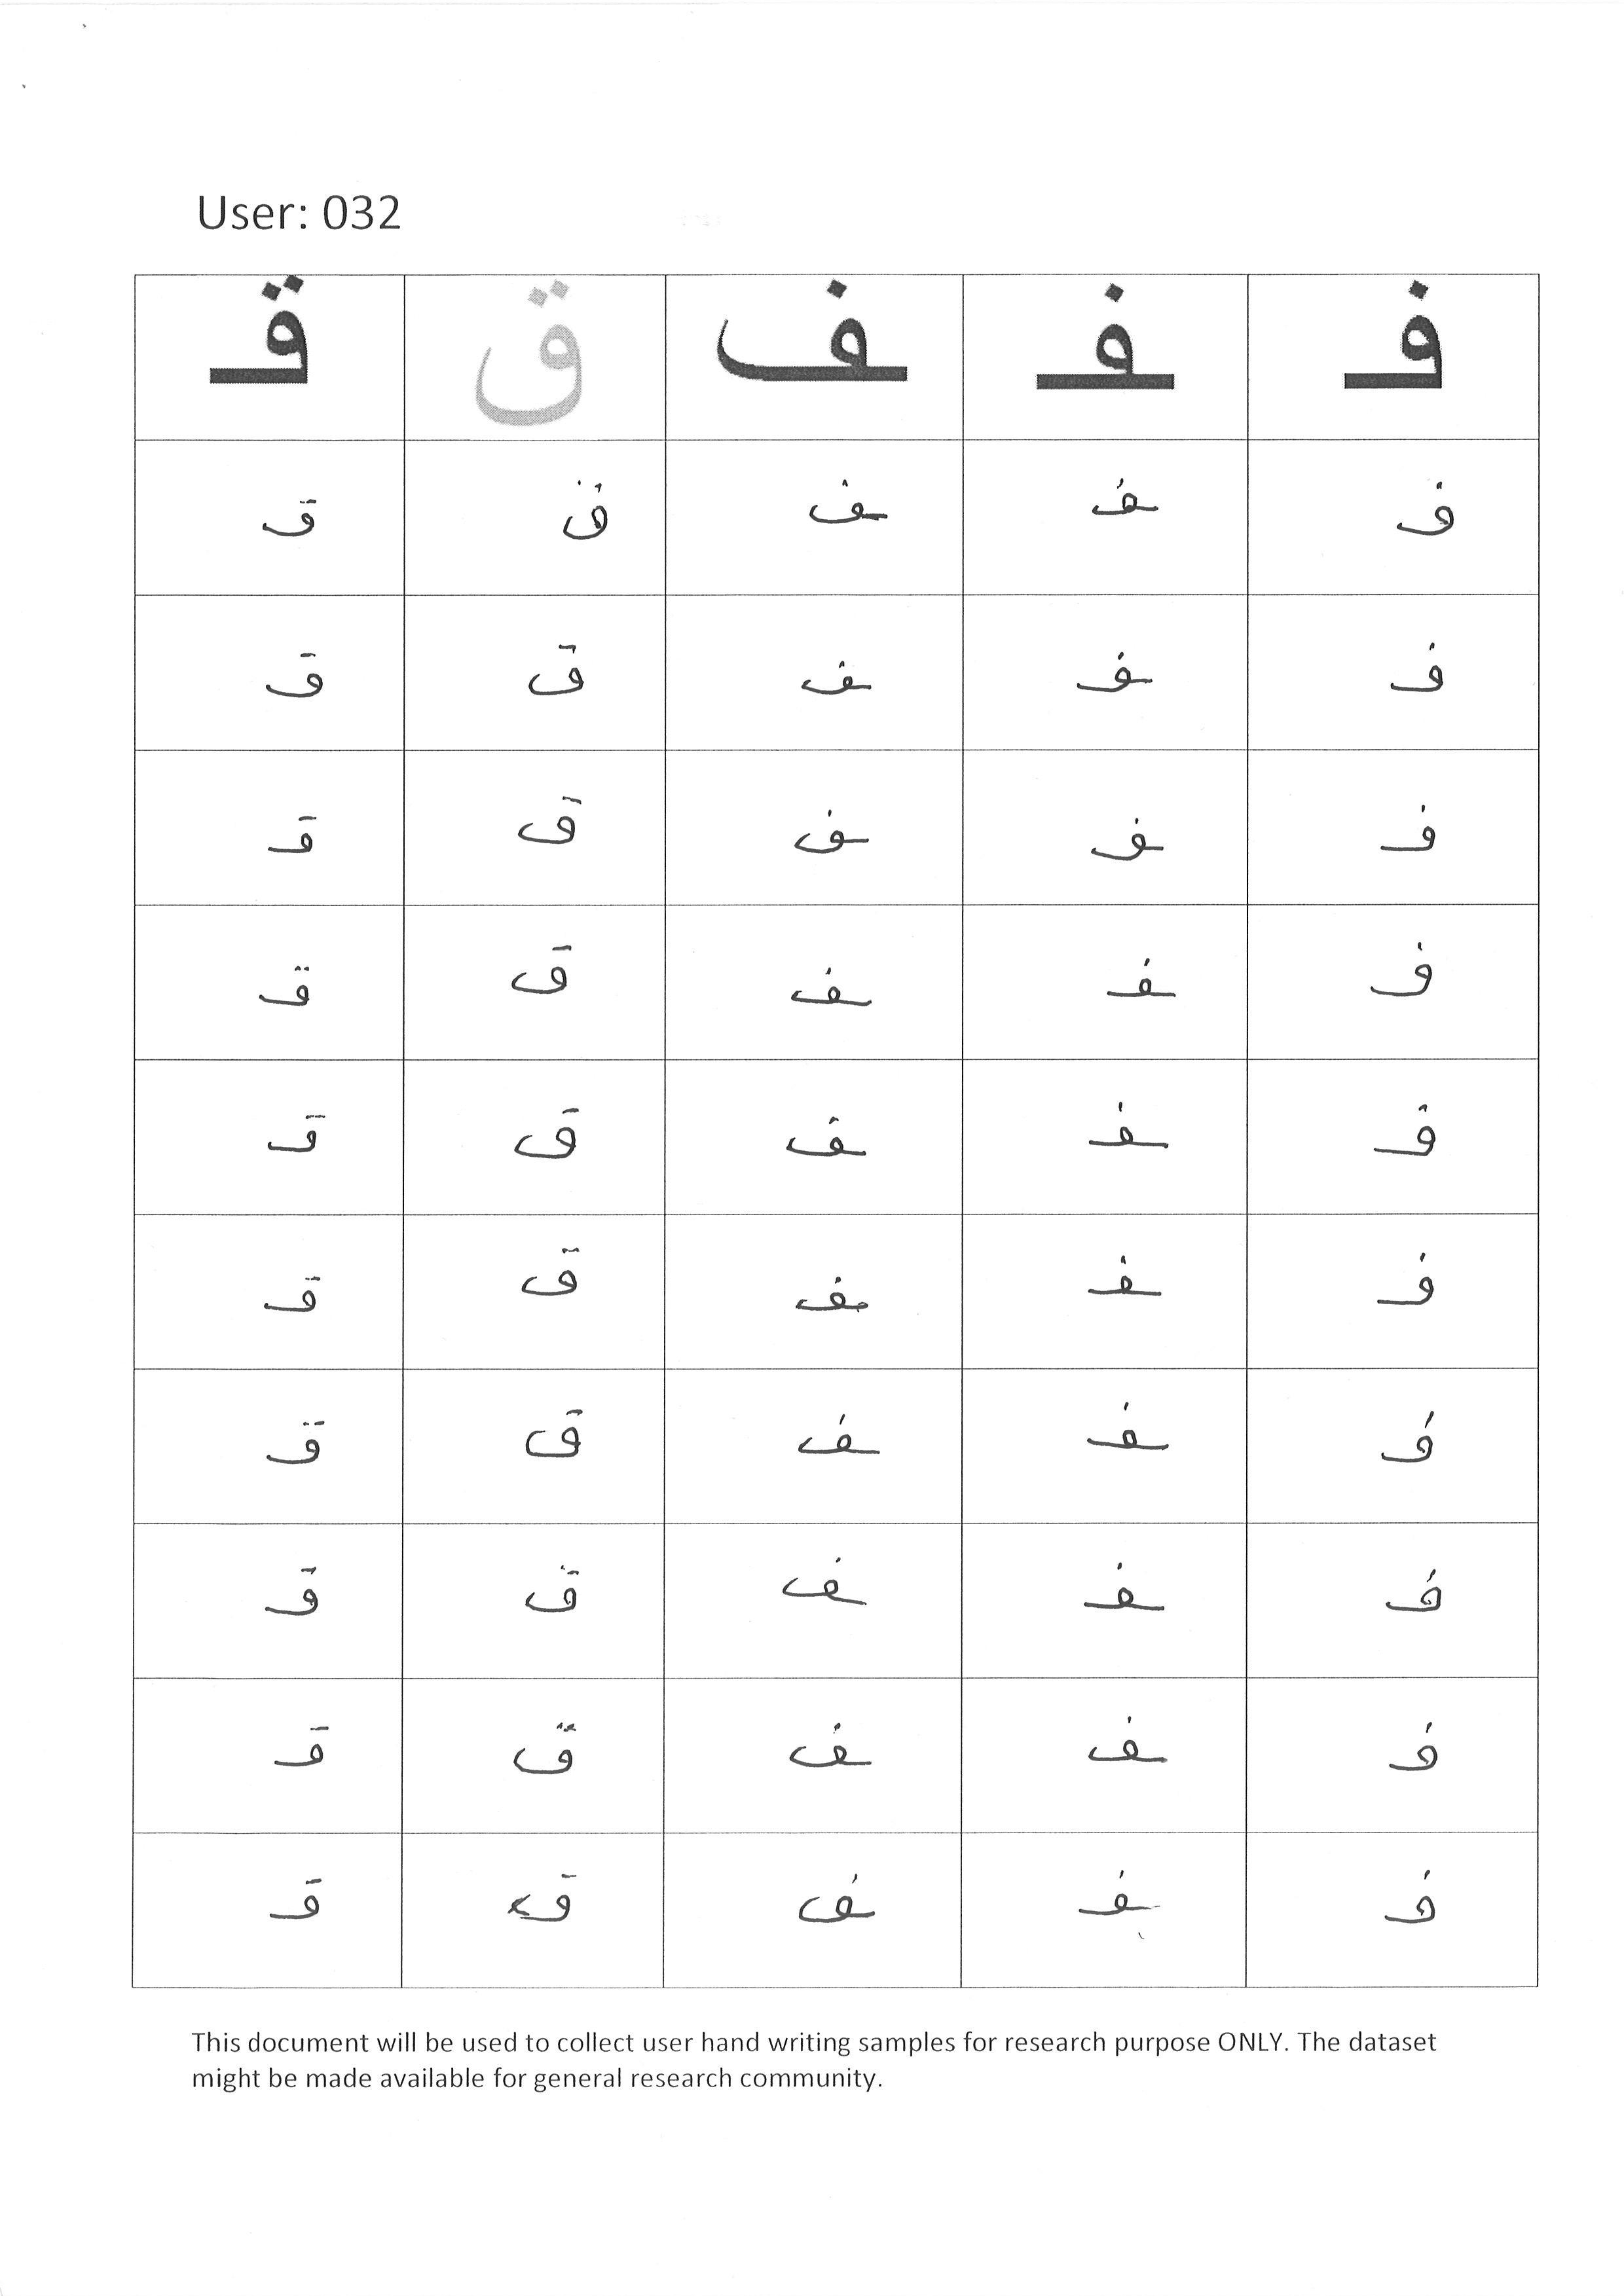 User: 032
فـ ـفـ ـف ق قـ
فـ ـفـ ـف ق قـ
فـ ـفـ ـف ق قـ
فـ ـفـ ـف ق قـ
فـ ـفـ ـف ق قـ
فـ ـفـ ـف ق قـ
فـ ـفـ ـف ق قـ
فـ ـفـ ـف ق قـ
فـ ـفـ ـف ق قـ
فـ ـفـ ـف ق قـ
فـ ـفـ ـف ق قـ
This document will be used to collect user hand writing samples for research purpose ONLY. The dataset
might be made available for general research community.